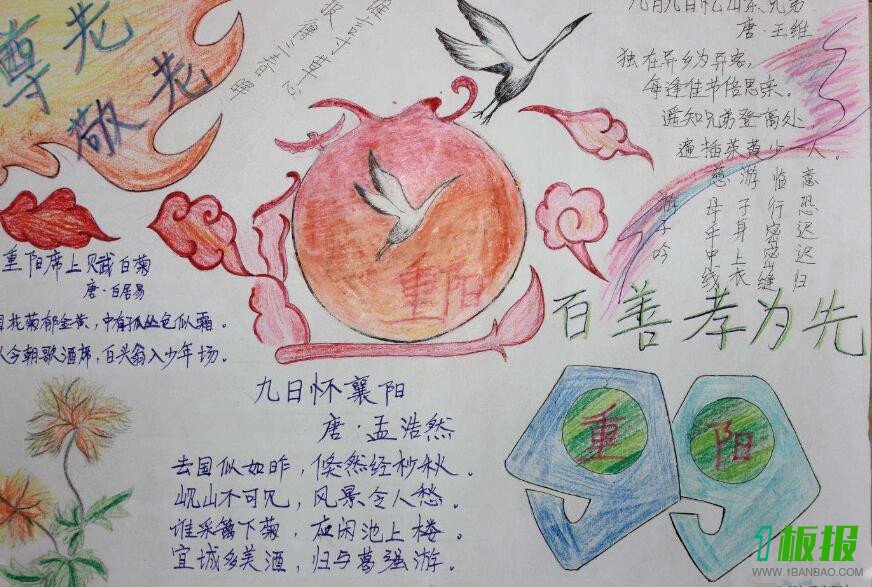 尊老
敬老
谁言寸草心
报得三春晖
九月九日忆山东兄弟
唐·王维
独在异乡为异客，
每逢佳节倍思亲。
遥知兄弟登高处，
遍插茱萸少一人。
游子吟
慈母手中线
游子身上衣
临行密密缝
意恐迟迟归
重阳
重阳席上赋白菊
唐·白居易
花菊郁金黄，中有孤丛色似霜。
今朝歌酒席，白头翁入少年场。
百善孝为先
九日怀襄阳
唐·孟浩然
去国似如昨，倏然经杪秋。
岘山不可见，风景令人愁。
谁采篱下菊，应闲池上楼。
宜城多美酒，归与葛强游。
重阳
1板报
WWW.1BANBAO.COM